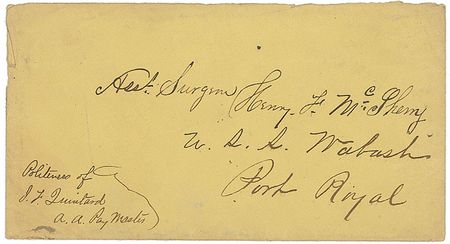 Asst. Surgeon Henry F. McSherry
U. S. S. Wabash
Port Royal
Politeness of
J. F. Quintard
A. A. Pay Master